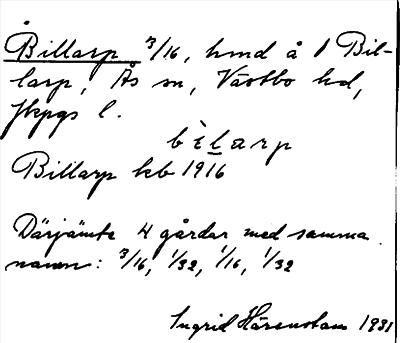 Billarp 3/16, hmd å 1 Bil-
larp, Ås sn, Västbo hd,
Jkpgs l.
bìlarp
Billarp kb 1916
Därjämte 4 gårdar med samma
namn: 3/16, 1/32, 1/16, 1/32
Ingrid Härenstam 1931